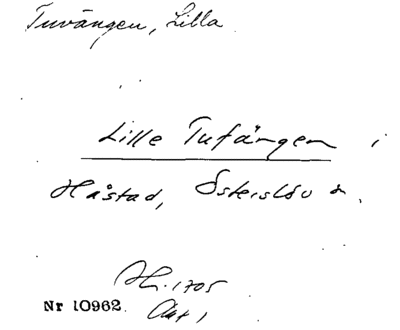 Tuvängen, Lilla
Lille Tufängen i
Håstad, Österslöv
H. 1705
Nr 10962.
Akt 1